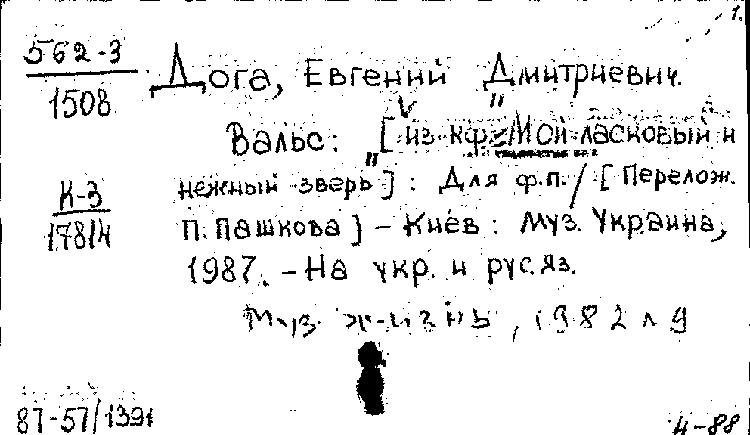 1.
562-3
1508
Дога, Евгений Дмитриевич.
Вальс: [из кф „Мой ласковый и
нежный зверь"] : Для ф.п. / [Перелож.
К-3
17814
П. Пашкова] - Киев : Муз. Украина,
1987. - На укр. и рус. яз.
Муз. жизнь, 1982 л 9
87-57/1391
4-88